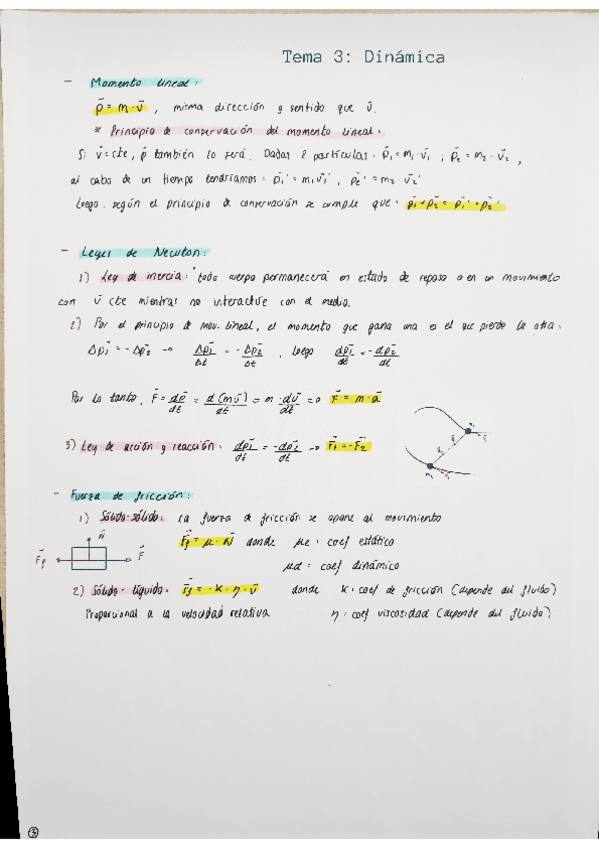 Tema 3: Dinámica
- Momento lineal:
p⃗ = m · v⃗, misma dirección y sentido que v⃗.
* Principio de conservación del momento lineal.
Si v⃗ = cte, p⃗ también lo será. Dadas 2 partículas: p⃗1 = m1 · v⃗1 ; p⃗2 = m2 · v⃗2,
al cabo de un tiempo tendríamos: p⃗1' = m1v⃗1', p⃗2' = m2 · v⃗2'
Luego, según el principio de conservación se cumple que: p⃗1 + p⃗2 = p⃗1' + p⃗2'
- Leyes de Newton:
1) Ley de inercia: todo cuerpo permanecerá en estado de reposo o en un movimiento
con v⃗ cte mientras no interactúe con el medio.
2) Por el principio de mov. lineal, el momento que gana una es el que pierde la otra:
Δp⃗1 = -Δp⃗2 → Δp⃗1/Δt = -Δp⃗2/Δt, luego dp⃗1/dt = -dp⃗2/dt
Por lo tanto, F⃗ = dp⃗/dt = d(mv⃗)/dt = m · dv⃗/dt => F⃗ = m · a⃗
3) Ley de acción y reacción: dp⃗1/dt = -dp⃗2/dt → F⃗1 = -F⃗2
- Fuerza de fricción:
1) Sólido-sólido: La fuerza de fricción se opone al movimiento
F⃗f = μ · N⃗ donde μe = coef estático
N⃗
F⃗f F⃗
μd = coef dinámico
2) Sólido-líquido: F⃗f = -k · η · v⃗ donde k = coef de fricción (depende del fluido)
Proporcional a la velocidad relativa η = coef viscosidad (depende del fluido)
3